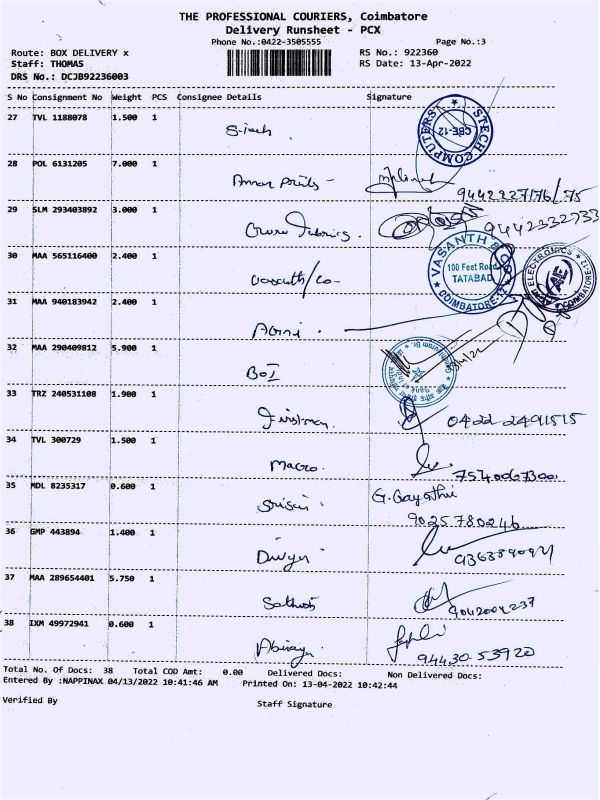 THE PROFESSIONAL COURIERS, Coimbatore
Delivery Runsheet - PCX
Phone No.:0422-3505555 Page No.:3
Route: BOX DELIVERY x RS No.: 922360
Staff: THOMAS RS Date: 13-Apr-2022
DRS No.: DCJB92236003
S No Consignment No Weight PCS Consignee Details Signature
27 TVL 1188078 1.500 1 S-Tech
STECH COMPUTERS CBE-12
28 POL 6131205 7.000 1
9442227176/75
29 SLM 293403892 3.000 1 Guru Fabrics.
9442332733
30 MAA 565116400 2.400 1 Vasanth/co-
VASANTH & CO 100 Feet Road TATABAD COIMBATORE-12
ELECTRONICS COIMBATORE-12
31 MAA 940183942 2.400 1
32 MAA 290409812 5.900 1 BOI
33 TRZ 240531108 1.900 1 Firstman.
0422 2491515
34 TVL 300729 1.500 1 Macro.
7540067300
35 MDL 8235317 0.600 1
G. Gayathri
9025780246
36 GMP 443894 1.400 1
37 MAA 289654401 5.750 1 Sathish
38 IXM 49972941 0.600 1
94430-53920
Total No. Of Docs: 38 Total COD Amt: 0.00 Delivered Docs: Non Delivered Docs:
Entered By :NAPPINAX 04/13/2022 10:41:46 AM Printed On: 13-04-2022 10:42:44
Verified By Staff Signature